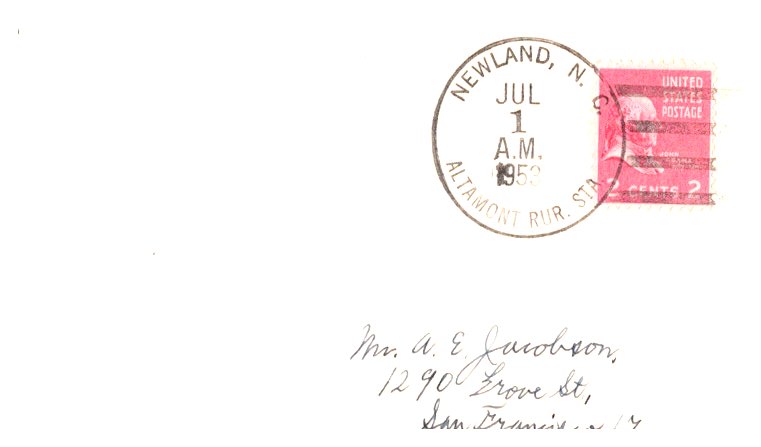 NEWLAND, N. C.
JUL
1
A.M.
1953
ALTAMONT RUR. STA.
UNITED
STATES
POSTAGE
JOHN
ADAMS
2 CENTS 2
Mr. A. E. Jacobson,
1290 Grove St,
San Francisco 17